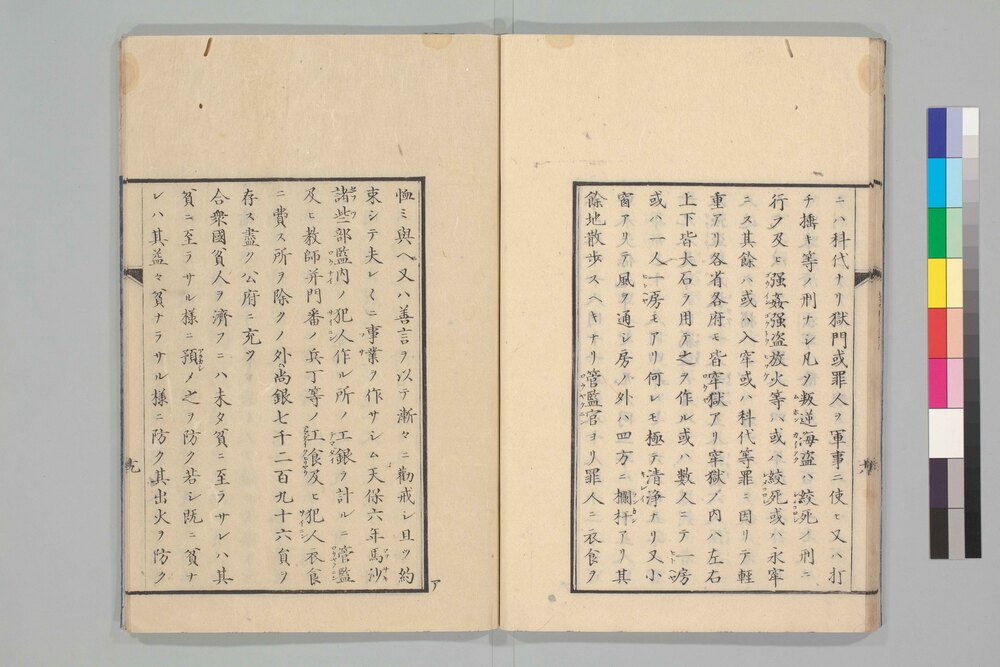 ニハ科代ナリ獄門或罪人ヲ軍事ニ使ヒ又ハ打
チ擒キ等ノ刑ナシ凡ソ叛逆海盗ハ絞死ノ刑ニ
行フ及ヒ强姦强盗放火等ハ或ハ絞死或ハ永牢
ニス其餘ハ或ハ入牢或ハ科代等罪ニ因リテ輕
重アリ各省各府モ皆牢獄アリ牢獄ノ内ハ左右
上下皆大石ヲ用テ之ヲ作ル或ハ數人ニテ一房
或ハ一人一房モアリ何レモ極テ清浄ナリ又小
窗アリテ風ヲ通シ房ノ外ハ四方ニ欄扞アリ其
餘地散歩スヘキナリ管監官ヨリ罪人ニ衣食ヲ
恤ミ與ヘ又ハ善言ヲ以テ漸々ニ勸戒シ且ツ約
束シテ夫レ〳〵ニ事業ヲ作サシム天保六年馬沙
諸些部監内ノ犯人作ル所ノ工銀ヲ計ルニ管監
及ヒ教師并門番ノ兵丁等ノ工食及ヒ犯人衣食
ニ費ス所ヲ除クノ外尚銀七千二百九十六員ヲ
存ス盡ク公府ニ充ツ
合衆國貧人ヲ濟フニハ未タ貧ニ至ラサレハ其
貧ニ至ラサル様ニ預メ之ヲ防ク若シ既ニ貧ナ
レハ其益々貧ナラサル様ニ防ク其出火ヲ防ク
九